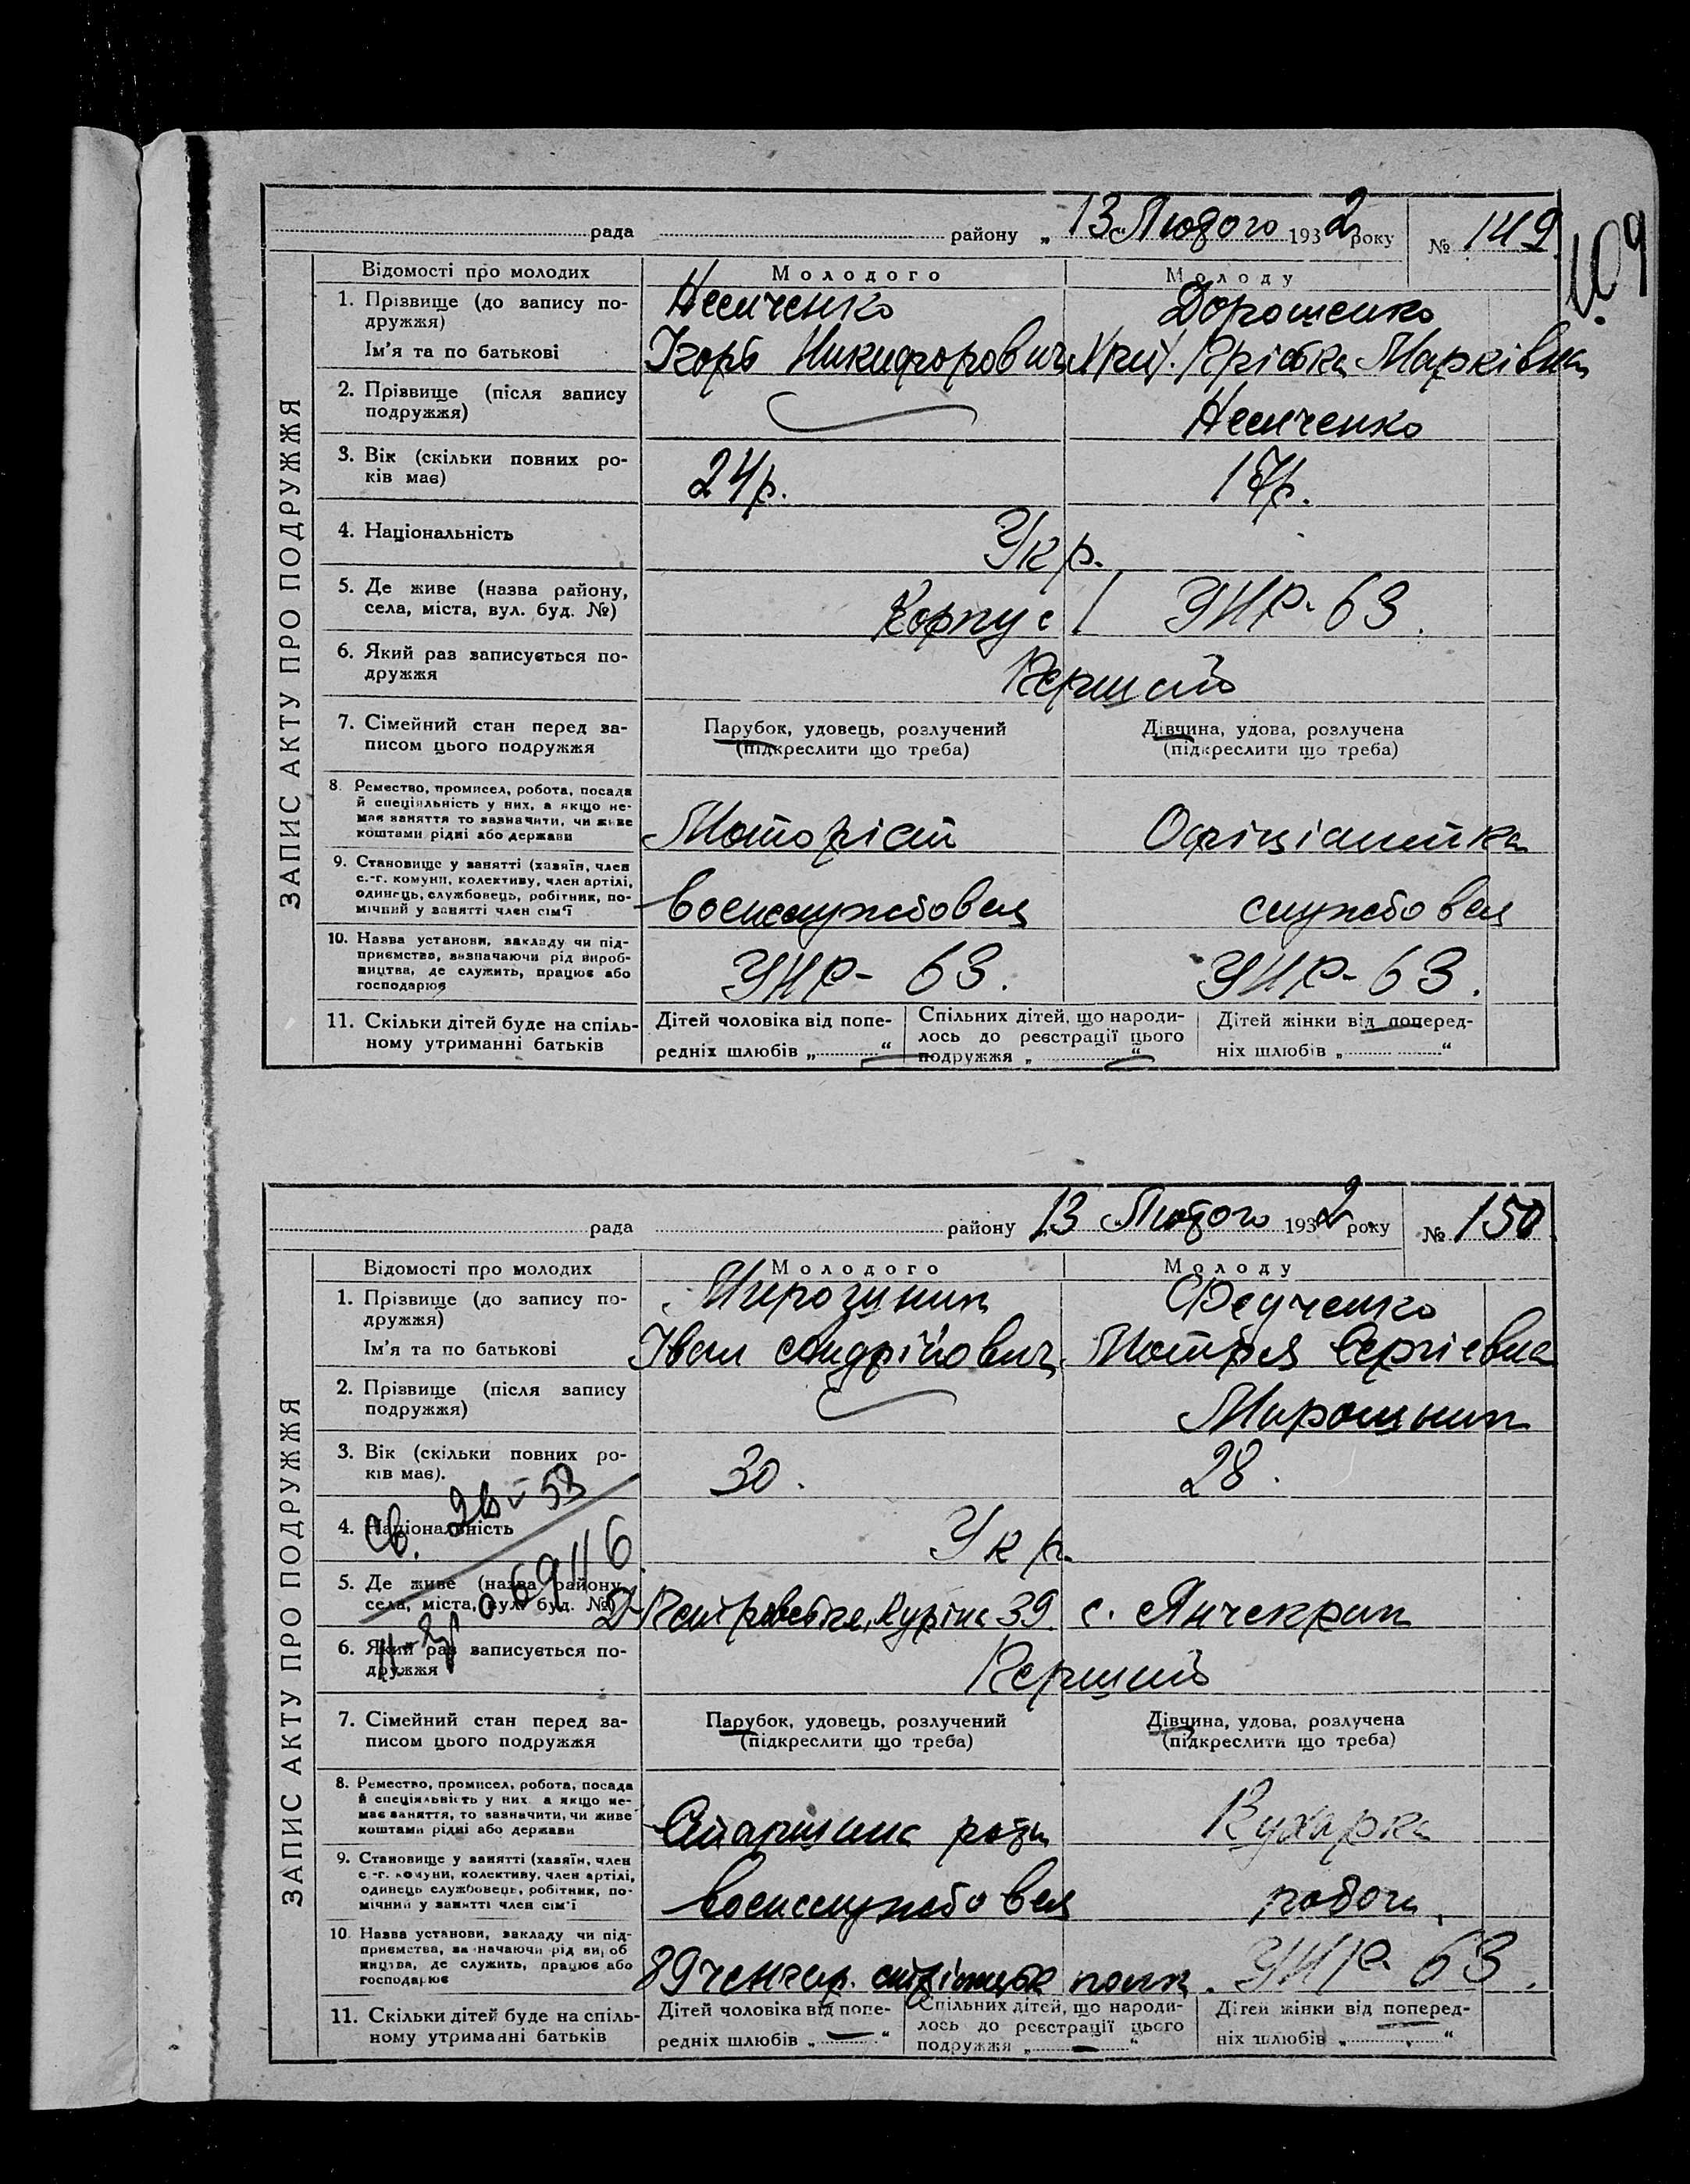 рада району „ 13 " Лютого 1932 року № 149
109
ЗАПИС АКТУ ПРО ПОДРУЖЖЯ
Відомості про молодих Молодого Молоду
1. Прізвище (до запису по- Дорошенко
дружжя)
Ім'я та по батькові Ігорь Никифорович Марківна
2. Прізвище (після запису
подружжя)
3. Вік (скільки повних ро- 24 р. 17 р.
ків має)
4. Національність Укр.
5. Де живе (назва району, Корпус 1 УНР-63.
села, міста, вул. буд. №)
6. Який раз записується по- Перший
дружжя
7. Сімейний стан перед за- Парубок, удовець, розлучений Дівчина, удова, розлучена
писом цього подружжя (підкреслити що треба) (підкреслити що треба)
8. Ремество, промисел, робота, посада
й спеціяльність у них, а якщо не-
має заняття то зазначити, чи живе
коштами рідні або держави Моторіст Офіціантка
9. Становище у занятті (хазяїн, член
с.-г. комуни, колективу, член артілі,
одинець, службовець, робітник, по-
мічний у занятті член сім'ї военслужбовец службовец
10. Назва установи, закладу чи під-
приємства, визначаючи рід вироб-
ництва, де служить, працює або
господарює УНР-63. УНР-63.
11. Скільки дітей буде на спіль- Дітей чоловіка від попе- Спільних дітей, що народи- Дітей жінки від поперед-
ному утриманні батьків редніх шлюбів „ — “ лось до реєстрації цього ніх шлюбів „ — “
подружжя „ — “
рада району 13 Лютого 1932 року № 150
ЗАПИС АКТУ ПРО ПОДРУЖЖЯ
Відомості про молодих Молодого Молоду
1. Прізвище (до запису по- Федченко
дружжя)
Ім'я та по батькові Іван Андрійович Мотря Сергіевна
2. Прізвище (після запису Мирошник
подружжя)
3. Вік (скільки повних ро- 30. 28.
ків має).
4. Національність Укр.
5. Де живе (назва району, 39 с. Янчекрак
села, міста, вул. буд. №)
6. Який раз записується по- Перший
дружжя
7. Сімейний стан перед за- Парубок, удовець, розлучений Дівчина, удова, розлучена
писом цього подружжя (підкреслити що треба) (підкреслити що треба)
8. Ремество, промисел, робота, посада
й спеціяльність у них а якщо не-
має заняття, то зазначити, чи живе
коштами рідні або держави Старшина роти Кухарка
9. Становище у занятті (хазяїн, член
с.-г. комуни, колективу, член артілі,
одинець службовець, робітник, по-
мічний у занятті член сім'ї военслужбовец робоч.
10. Назва установи, закладу чи під-
приємства, зазначаючи рід вироб
ництва, де служить, працює або
господарює 89 полк. УНР 63.
11. Скільки дітей буде на спіль- Дітей чоловіка від попе- Спільних дітей, що народи- Дітей жінки від поперед-
ному утриманні батьків редніх шлюбів „ — “ лось до реєстрації цього ніх шлюбів „ — “
подружжя „ — “